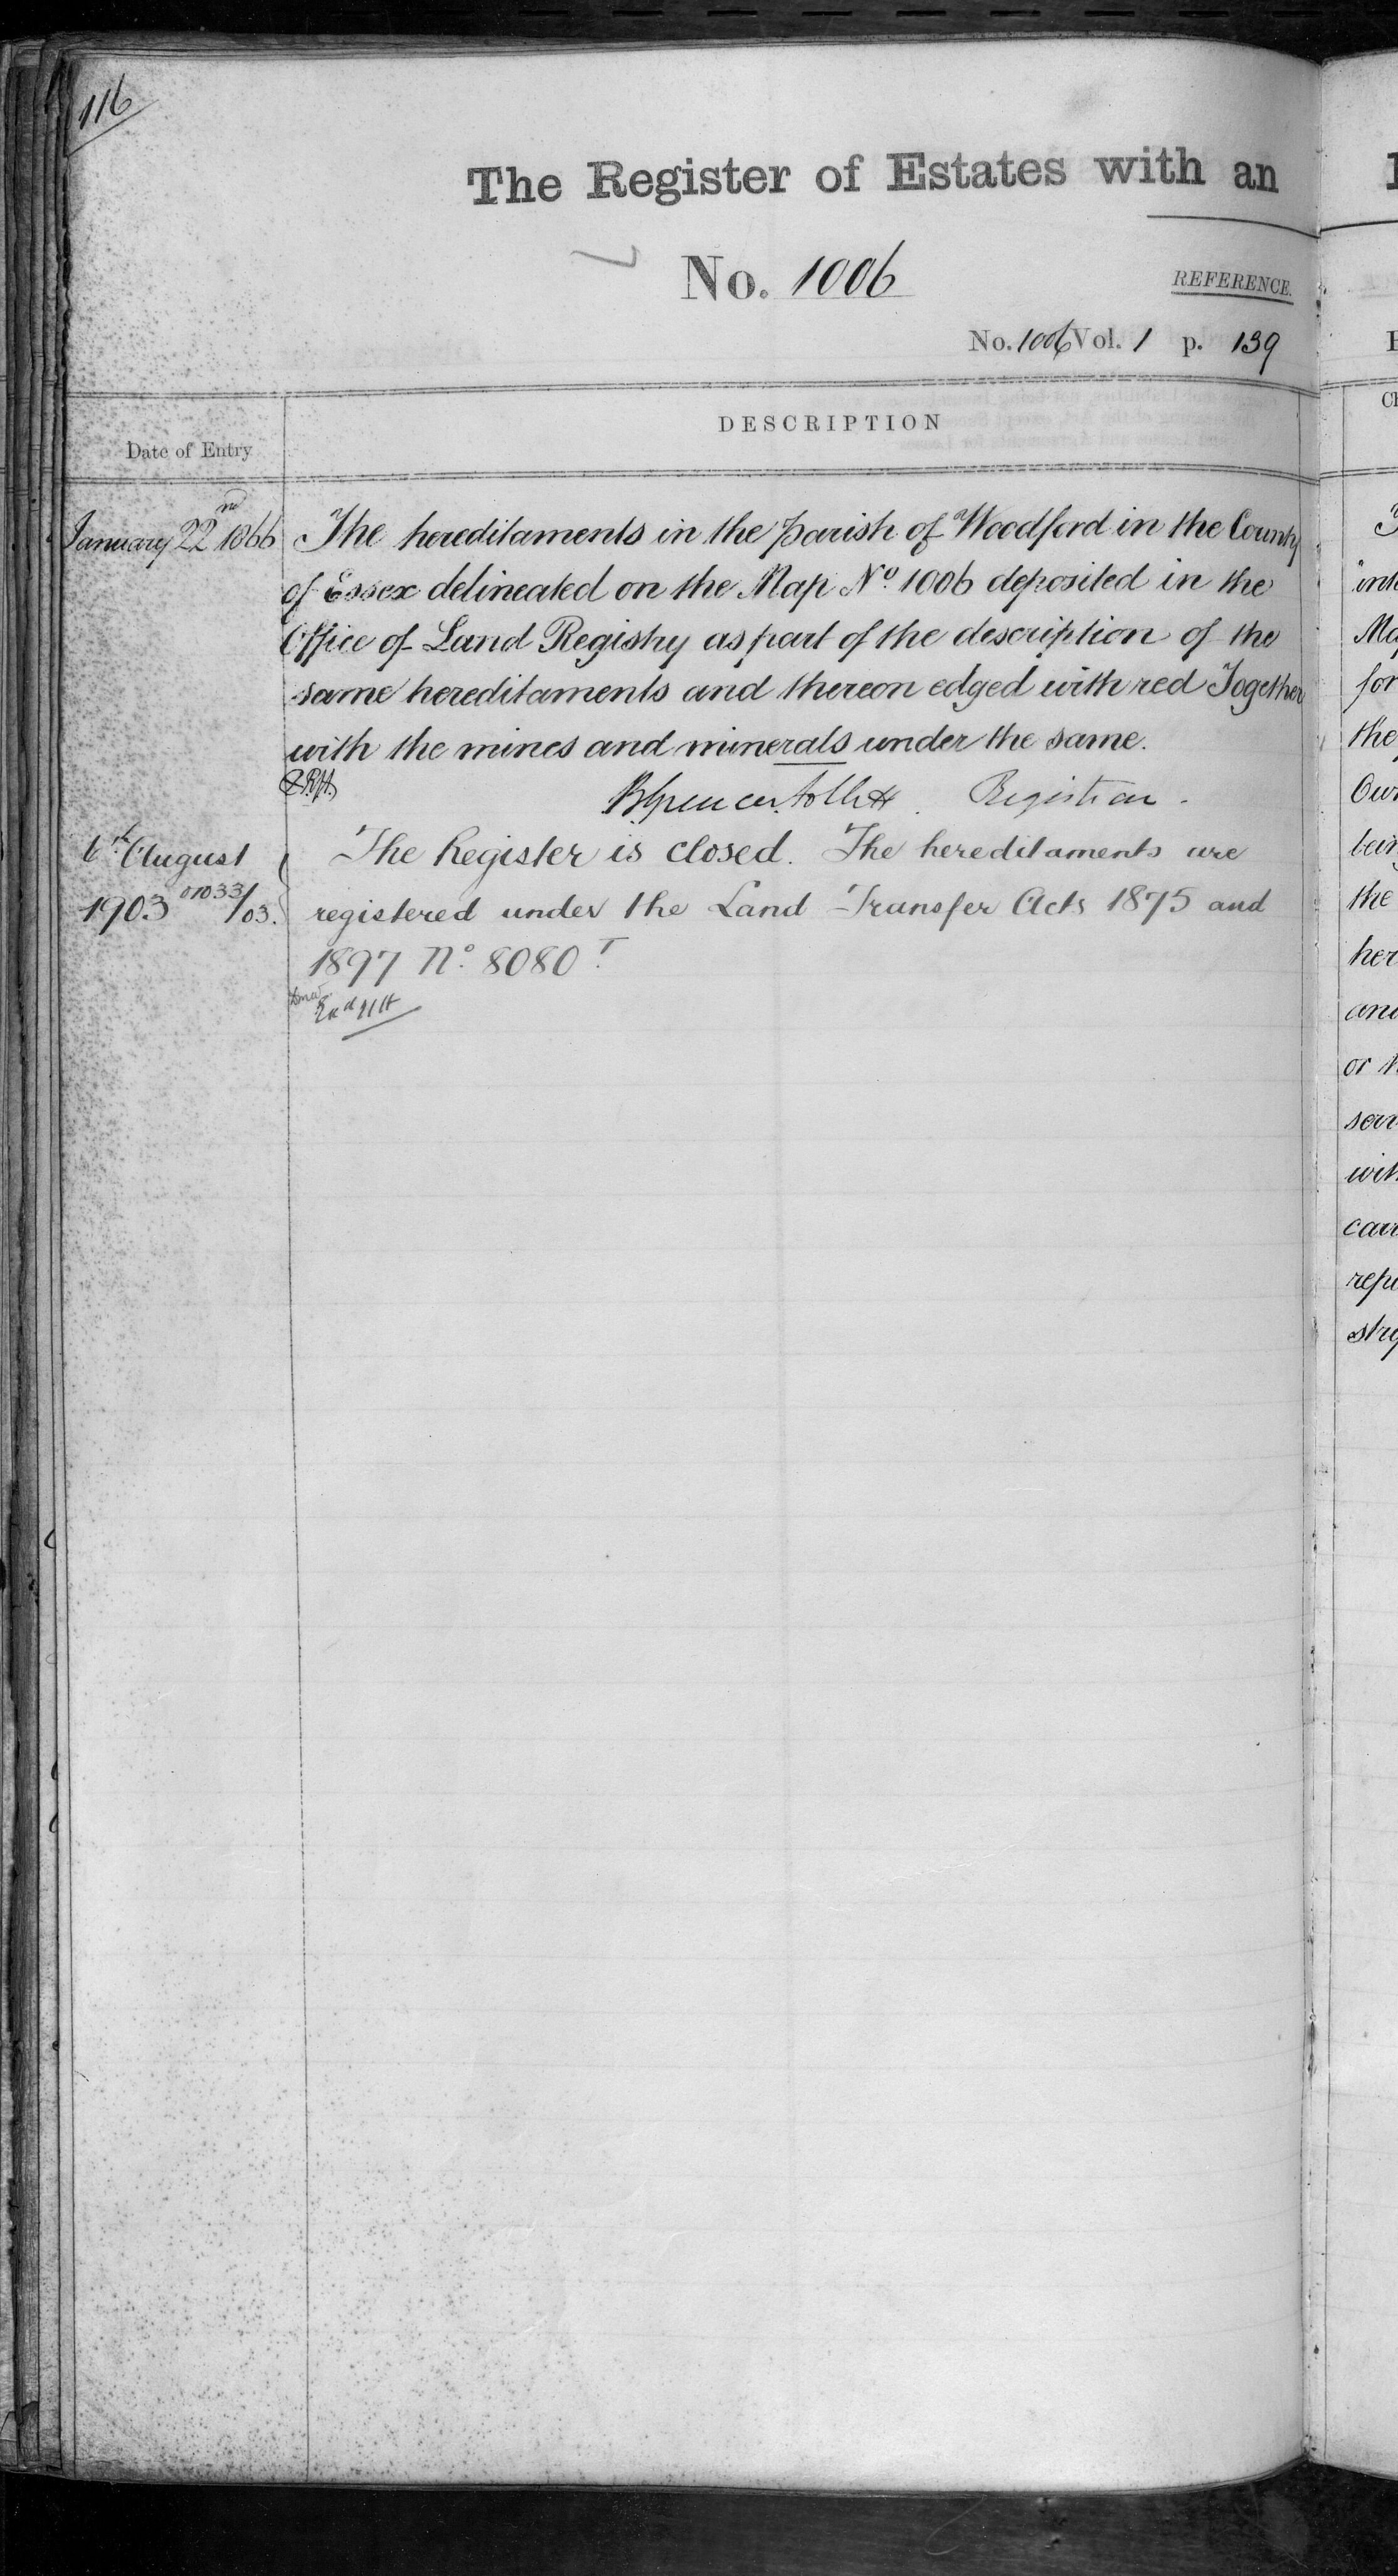 116
The Register of Estates with an
No. 1006
REFERENCE.
No. 1006 Vol. 1 p. 139
DESCRIPTION
Date of Entry
January 22nd 1866
The hereditaments in the parish of Woodford in the County
of Essex delineated on the Map No 1006 deposited in the
Office of Land Registry as part of the description of the
same hereditaments and thereon edged with red Together
with the mines and minerals under the same.
Brent Spencer Follett Registrar.
6th August
1903 01033/03.
The Register is closed. The hereditaments are
registered under the Land Transfer Acts 1875 and
1897 No. 8080 T.